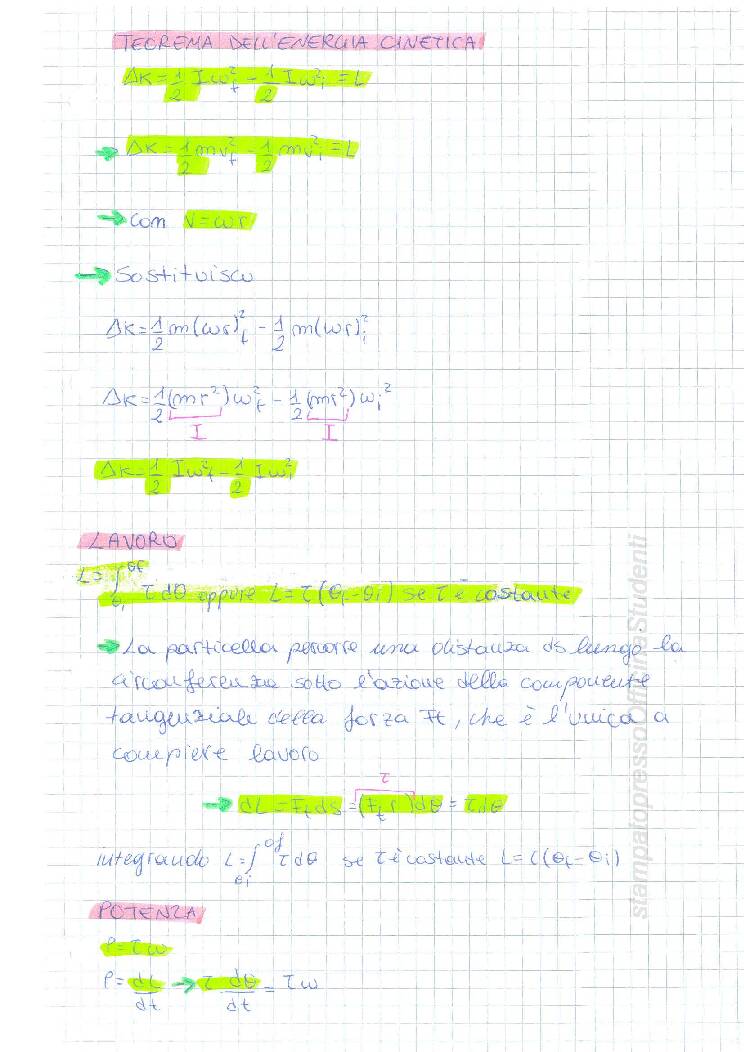 TEOREMA DELL'ENERGIA CINETICA
ΔK = 1/2 Iω_f² - 1/2 Iω_i² = L
→ ΔK = 1/2 mv_f² - 1/2 mv_i² = L
→ con v = ωr
→ Sostituisco
ΔK = 1/2 m(ωr)_f² - 1/2 m(ωr)_i²
ΔK = 1/2 (mr²) ω_f² - 1/2 (mr²) ω_i²
I I
ΔK = 1/2 Iω_f² - 1/2 Iω_i²
LAVORO
L = ∫_θi^θf τ dθ oppure L = τ (θf - θi) se τ è costante
→ La particella percorre una distanza ds lungo la
circonferenza sotto l'azione della componente
tangenziale della forza Ft, che è l'unica a
compiere lavoro
τ
→ dL = Ft ds = (Ft r) dθ = τdθ
integrando L = ∫_θi^θf τ dθ se τ è costante L = τ(θf - θi)
POTENZA
P = τω
P = dL/dt → τ dθ/dt = τω
stampatopressoOfficinaStudenti